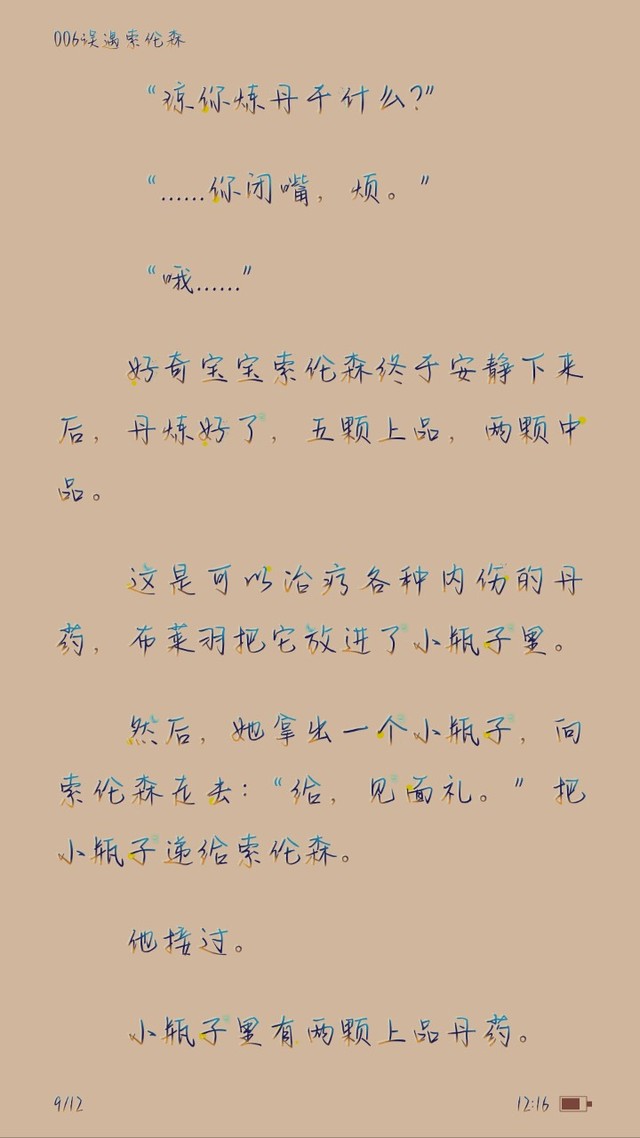 006误遇索伦森
“琼你炼丹干什么？”
“……你闭嘴，烦。”
“哦……”
好奇宝宝索伦森终于安静下来
后，丹炼好了，五颗上品，两颗中
品。
这是可以治疗各种内伤的丹
药，布莱羽把它放进了小瓶子里。
然后，她拿出一个小瓶子，向
索伦森走去：“给，见面礼。”把
小瓶子递给索伦森。
他接过。
小瓶子里有两颗上品丹药。
9/12
12:16